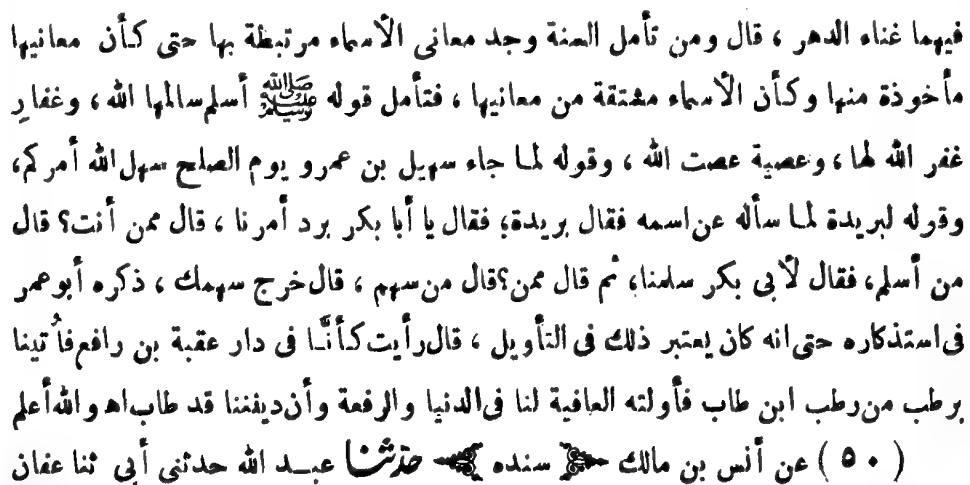 فيهما غناء الدهر ، قال ومن تأمل السنة وجد معانى الأسماء مرتبطة بها حتى كأن معانيها
مأخوذة منها وكأن الأسماء مشتقة من معانيها ، فتأمل قوله ﷺ أسلم سالمها الله ، وغفار
غفر الله لها ، وعصية عصت الله ، وقوله لما جاء سهيل بن عمرو يوم الصلح سهل الله أمركم،
وقوله لبريدة لما سأله عن اسمه فقال بريدة؛ فقال يا أبا بكر برد أمرنا ، قال ممن أنت؟ قال
من أسلم، فقال لأبى بكر سلمنا، ثم قال ممن؟ قال من سهم ، قال خرج سهمك ، ذكره أبو عمر
فى استذكاره حتى انه كان يعتبر ذلك فى التأويل ، قال رأيت كأنَّا فى دار عقبة بن رافع فأُتينا
برطب من رطب ابن طاب فأولته العافية لنا فى الدنيا والرفعة وأن ديننا قد طاب اه والله أعلم
( ٥٠ ) عن أنس بن مالك ﴿ سنده ﴾ حدثنا عبـد الله حدثنى أبى ثنا عفان